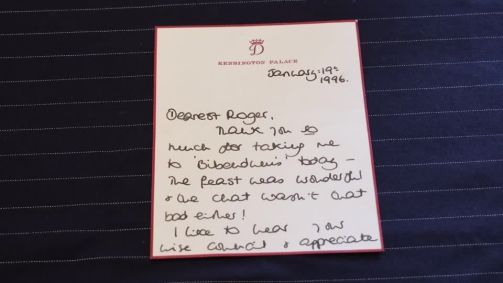 D
KENSINGTON PALACE
January: 19th
1996.
Dearest Roger,
Thank you so
much for taking me
to 'Bibendum's' today -
The feast was wonderful
& the chat wasn't that
bad either!
I like to hear your
wise council & appreciate